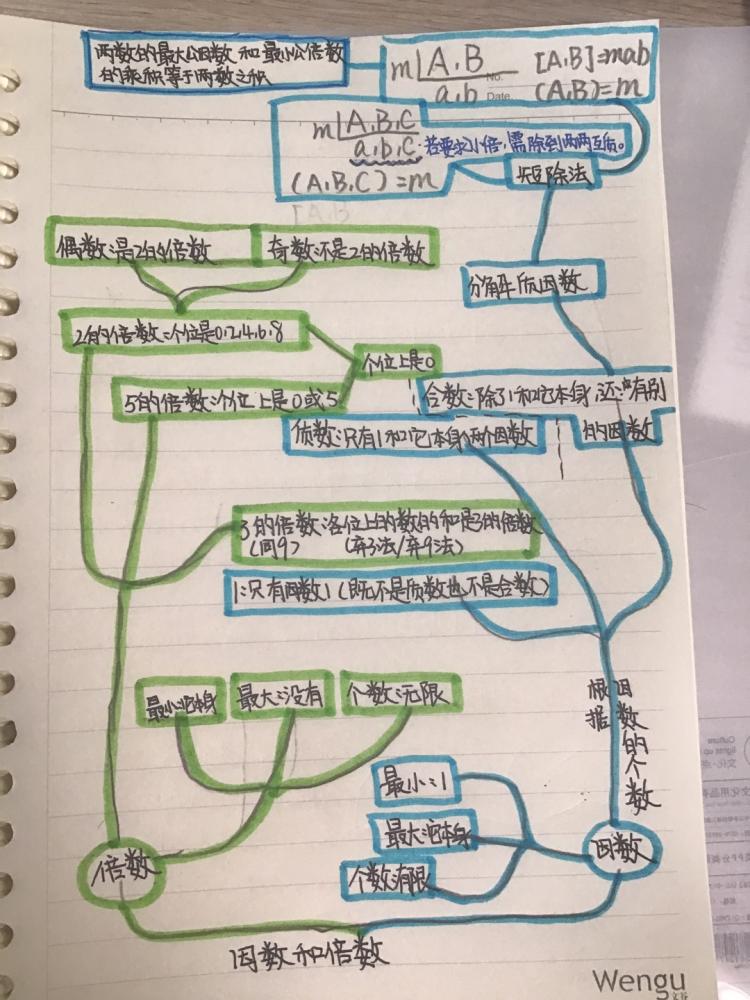 两数的最大公因数和最小公倍数
的乘积等于两数之积
m A,B [A,B]=mab
a,b (A,B)=m
No.
Date
m A,B,C
a,b,C 若要求小倍,需除到两两互质。
(A,B,C)=m
短除法
偶数:是2的倍数
奇数:不是2的倍数
分解质因数
2的倍数:个位是0.2.4.6.8
个位上是0
5的倍数:个位上是0或5
合数:除了1和它本身还有别
的因数
质数:只有1和它本身两个因数
3的倍数:各位上的数的和是3的倍数
(同9) (弃3法/弃9法)
1:只有因数1(既不是质数也不是合数)
根据因数的个数
最小:它本身
最大:没有
个数:无限
最小:1
最大:它本身
个数:有限
倍数
因数
因数和倍数
Wengu